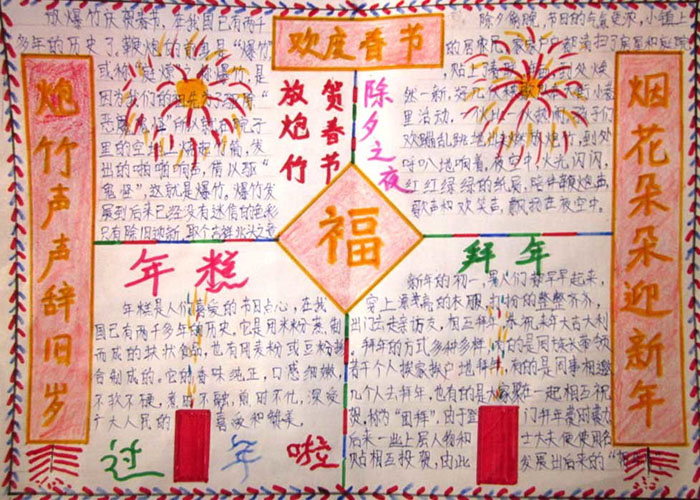 欢度春节
炮竹声声辞旧岁
烟花朵朵迎新年
放炮竹
贺春节
放爆竹庆贺春节，在我国已有两千
多年的历史了。鞭炮的前身是“爆竹”
或称
爆竹，是
因为我们的祖先为了驱除“
里的空地
出的啪啪响声，借以驱“
鬼怪”。这就是爆竹。爆竹发
展到后来已经没有迷信的色彩
只有除旧迎新，取个吉祥
除夕之夜
除夕前晚，节日的气氛更浓，小镇上
的居民，家家户户都清扫了
，贴上
到处焕
然一新。
里活动，
孩子们
欢蹦乱跳地
燃放炮竹，到处
呼叭地响着，夜空中火光闪闪，
红红绿绿的纸屑，陪伴鞭炮声，
歌声和欢笑声，飘荡在夜空中。
福
年糕
年糕是人们喜爱的节日点心，在我
国已有两千多年的历史。它是用米粉蒸制
而成的块状食品，也有用麦粉或豆粉
合制成的。它的香味纯正，口感细嫩，
不软不硬，煮时不融，煎时不化，深受
广大人民的
喜爱和赞美。
过年啦
拜年
新年的初一，人们都早早起来，
穿上漂亮的衣服，打扮的整整齐齐，
出门去走亲访友，相互拜年，恭祝来年大吉大利
。拜年的方式多种多样，有的是同族长带领
若干人挨家挨户地拜年；有的是同事相邀
几个人去拜年；也有的是大家聚在一起相互祝
贺，称为“团拜”。由于登
门拜年费时费力
后来一些上层人物和
士大夫便使用名
贴相互投贺，由此
发展出后来的“